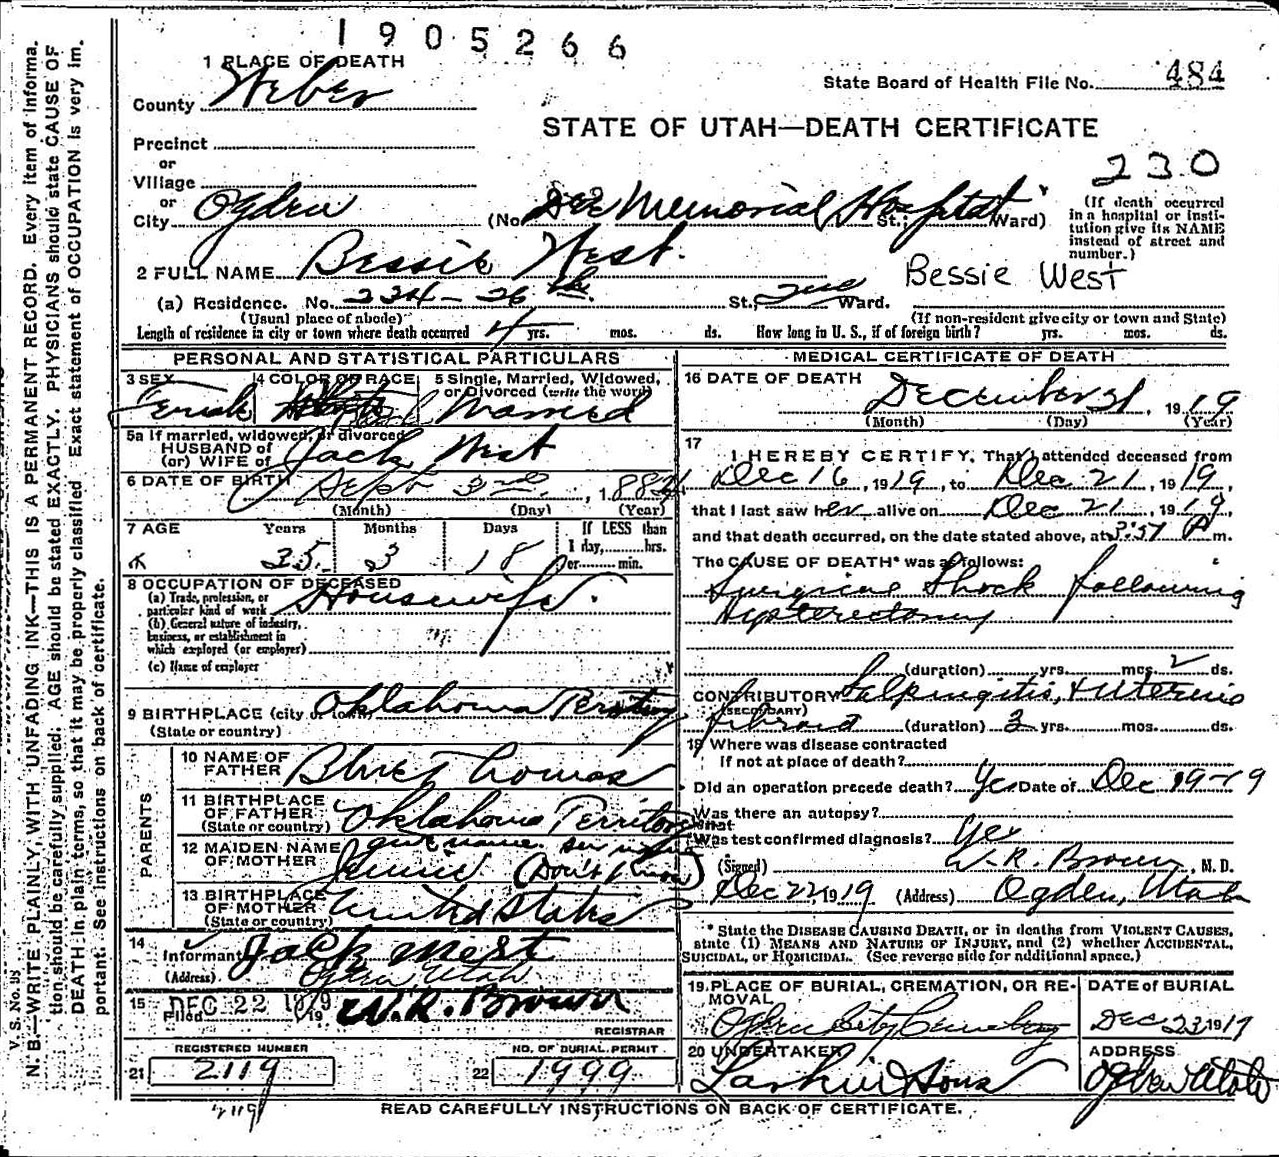 1905266
1 PLACE OF DEATH
County Weber
State Board of Health File No. 484
STATE OF UTAH—DEATH CERTIFICATE
Precinct
or
Village
or
City Ogden (No. Dee Memorial Hospital St.; Ward)
230
(If death occurred in a hospital or insti-
tution give its NAME
instead of street and
number.)
2 FULL NAME Bessie West.
Bessie West
(a) Residence. No. 234 - 26 th St., 2nd Ward.
(Usual place of abode) (If non-resident give city or town and State)
Length of residence in city or town where death occurred 4 yrs. mos. ds. How long in U. S., if of foreign birth? yrs. mos. ds.
PERSONAL AND STATISTICAL PARTICULARS
3 SEX 4 COLOR OR RACE 5 Single, Married, Widowed,
or Divorced (write the word)
Female Married
5a If married, widowed, or divorced
HUSBAND of
(or) WIFE of Jack West
6 DATE OF BIRTH Sept 3rd, 1884
(Month) (Day) (Year)
7 AGE Years Months Days If LESS than
35 3 18 1 day, hrs.
or min.
8 OCCUPATION OF DECEASED
(a) Trade, profession, or
particular kind of work Housewife.
(b) General nature of industry,
business, or establishment in
which employed (or employer)
(c) Name of employer
9 BIRTHPLACE (city or town) Oklahoma Territory
(State or country)
PARENTS
10 NAME OF
FATHER Thomas
11 BIRTHPLACE
OF FATHER Oklahoma Territory
(State or country)
12 MAIDEN NAME
OF MOTHER Jennie (Don't Know)
13 BIRTHPLACE
OF MOTHER United States
(State or country)
14
Informant Jack West
(Address) Ogden Utah
15 DEC 22 1919
Filed 19 W.R. Brown
REGISTRAR
REGISTERED NUMBER NO. OF BURIAL PERMIT
21 2119 22 1999
2119
MEDICAL CERTIFICATE OF DEATH
16 DATE OF DEATH December 21, 1919
(Month) (Day) (Year)
17
I HEREBY CERTIFY, That I attended deceased from
Dec 16, 1919, to Dec 21, 1919,
that I last saw her alive on Dec 21, 1919,
and that death occurred, on the date stated above, at 3:57 P m.
The CAUSE OF DEATH* was as follows:
Surgical Shock following
Hysterectomy
(duration) yrs. mos. 2 ds.
CONTRIBUTORY Salpingitis, & Uterine
(SECONDARY)
fibroid (duration) 3 yrs. mos. ds.
18 Where was disease contracted
if not at place of death?
Did an operation precede death? Yes Date of Dec 19-19
Was there an autopsy?
What
Was test confirmed diagnosis? Yes
(Signed) W. R. Brown, M. D.
Dec 22, 1919 (Address) Ogden, Utah
* State the DISEASE CAUSING DEATH, or in deaths from VIOLENT CAUSES,
state (1) MEANS AND NATURE OF INJURY, and (2) whether ACCIDENTAL,
SUICIDAL, or HOMICIDAL. (See reverse side for additional space.)
19 PLACE OF BURIAL, CREMATION, OR RE-
MOVAL
Ogden City Cemetery
DATE of BURIAL
Dec 23 1919
20 UNDERTAKER
Larkin & Sons
ADDRESS
Ogden Utah
READ CAREFULLY INSTRUCTIONS ON BACK OF CERTIFICATE.
V. S. No.
N. B.—WRITE PLAINLY, WITH UNFADING INK—THIS IS A PERMANENT RECORD. Every item of informa-
tion should be carefully supplied. AGE should be stated EXACTLY. PHYSICIANS should state CAUSE OF
DEATH in plain terms, so that it may be properly classified. Exact statement of OCCUPATION is very im-
portant. See instructions on back of certificate.